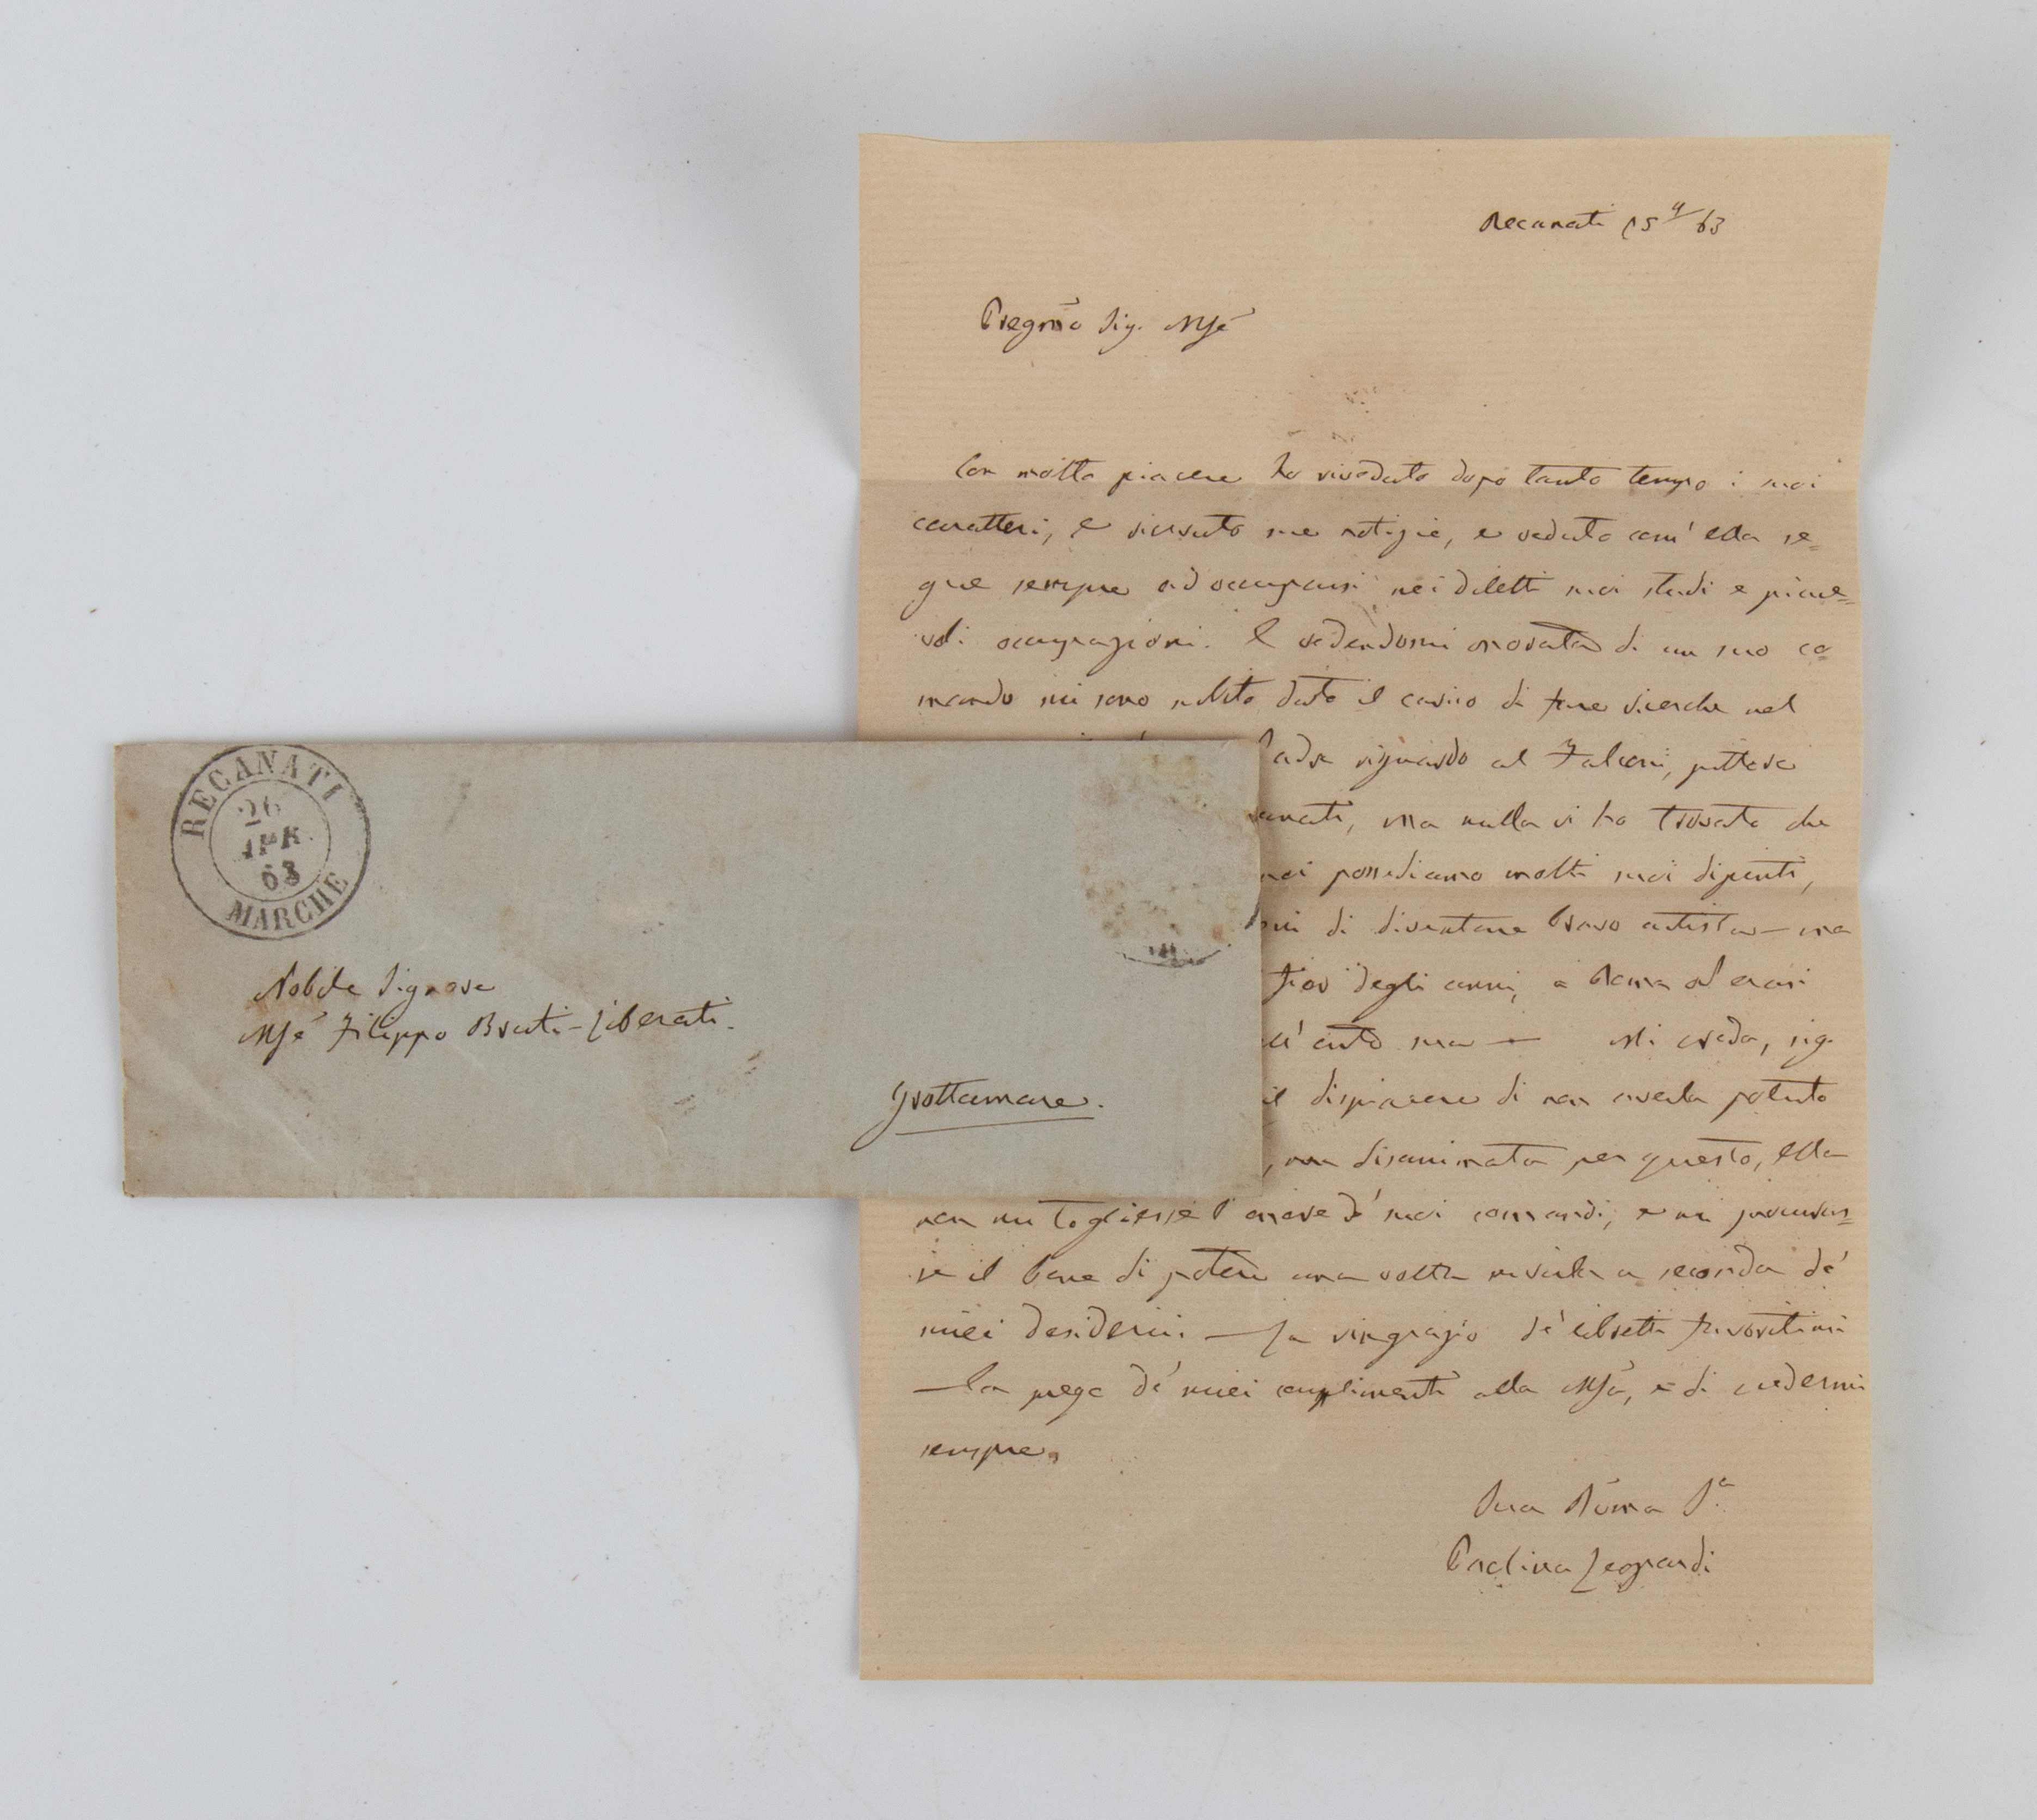 RECANATI
26
APR
63
MARCHE
Nobile Signore
Mse Filippo Bruti-Liberati.
Grottamare.
Recanati 25 4/63
Pregmo Sig. Mse
Con molto piacere ho riveduto dopo tanto tempo i suoi
caratteri, e ricevuto sue notizie, e veduto com' ella se=
gue sempre ad occuparsi nei diletti suoi studi e piace=
voli occupazioni. E vedendomi onorata di un suo co=
mando mi sono subito dato il carico di fare ricerche nel
Padre riguardo al Falconi, pittore
anati, ma nulla vi ho trovato che
noi possediamo molti suoi dipinti,
di diventare bravo artista — ma
fior degli anni, a Roma ed erasi
ma — Mi creda, sig.
il dispiacere di non averla potuto
, non disanimata per questo, ella
non mi togliesse l'onore de' suoi comandi, e mi procuras=
se il bene di poterla una volta servirla a seconda de'
miei desiderii — La ringrazio de' libretti favoritimi
— La prego de' miei complimenti alla Msa, e di credermi
sempre,
Sua Dma Sa
Paolina Leopardi